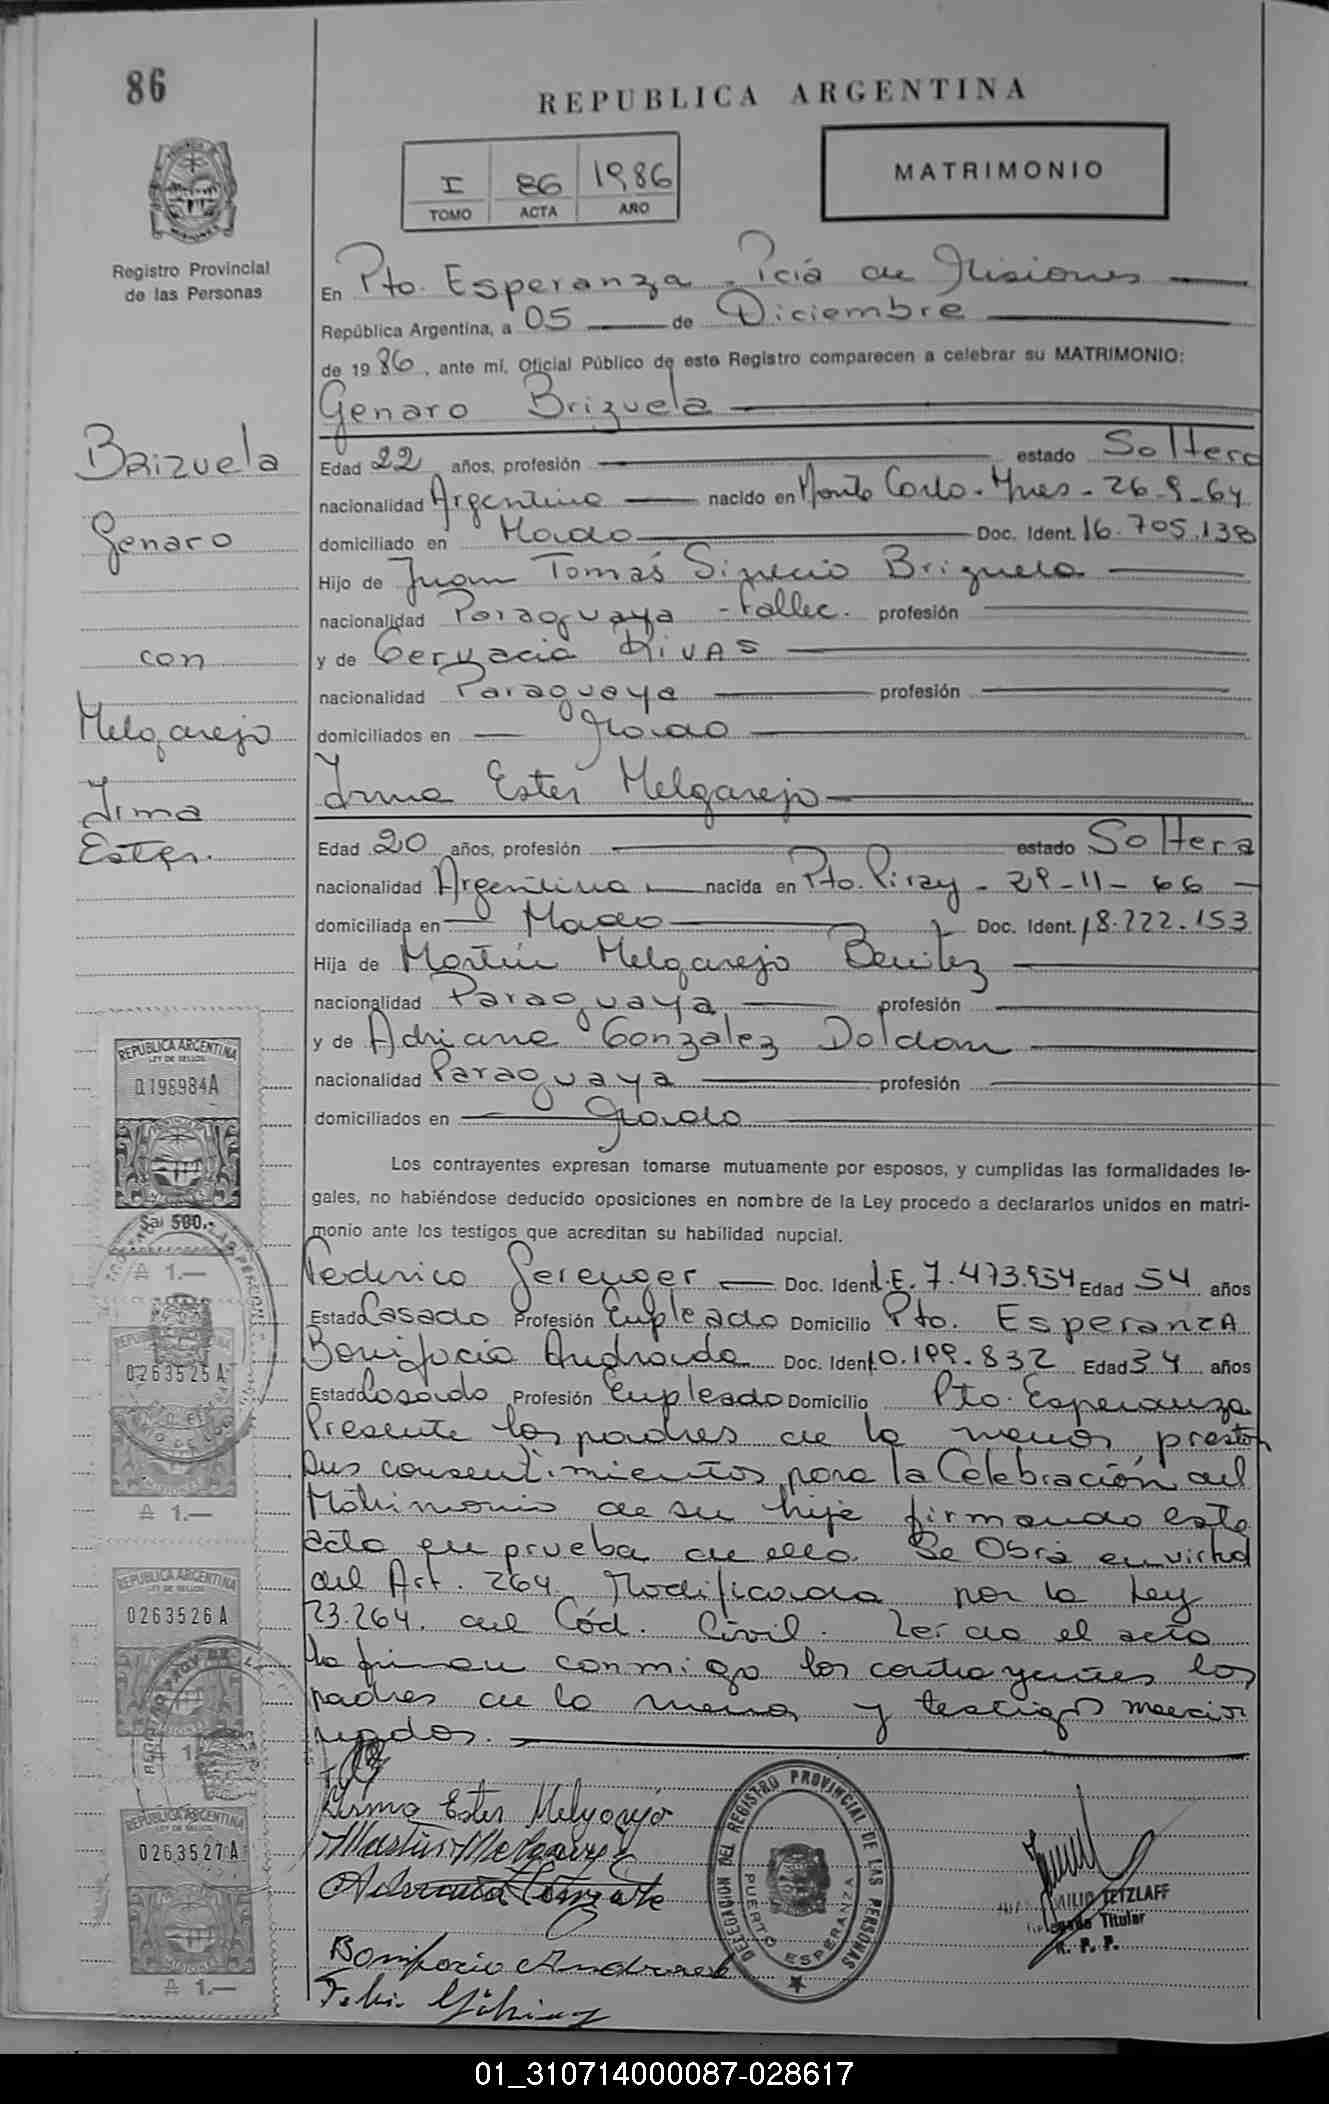 86
REPUBLICA ARGENTINA
I 86 1986
TOMO ACTA AÑO
MATRIMONIO
Registro Provincial
de las Personas
En Pto. Esperanza - Pcia de Misiones
República Argentina, a 05 de Diciembre
de 1986, ante mí, Oficial Público de este Registro comparecen a celebrar su MATRIMONIO:
Genaro Brizuela
Brizuela
Genaro
con
Melgarejo
Irma
Ester.
Edad 22 años, profesión estado Soltero
nacionalidad Argentina nacido en Monte Carlo - Mnes - 26-9-64
domiciliado en Mado Doc. Ident. 16.705.138
Hijo de Juan Tomás Brizuela
nacionalidad Paraguaya - Fallec. profesión
y de Gervacia Rivas
nacionalidad Paraguaya profesión
domiciliados en Mado
Irma Ester Melgarejo
Edad 20 años, profesión estado Soltera
nacionalidad Argentina nacida en Pto. Piray - 29-11-66
domiciliada en Mado Doc. Ident. 18.222.153
Hija de Martín Melgarejo Benitez
nacionalidad Paraguaya profesión
y de Adriana Gonzalez Doldan
nacionalidad Paraguaya profesión
domiciliados en Mado
Los contrayentes expresan tomarse mutuamente por esposos, y cumplidas las formalidades le-
gales, no habiéndose deducido oposiciones en nombre de la Ley procedo a declararlos unidos en matri-
monio ante los testigos que acreditan su habilidad nupcial.
Federico Doc. Ident L.E. 7.473.954 Edad 54 años
Estado Casado Profesión Empleado Domicilio Pto. Esperanza
Bonifacio Andrada Doc. Ident 10.199.832 Edad 34 años
Estado Casado Profesión Empleado Domicilio Pto. Esperanza
Presente los padres de la menor prestan
sus consentimientos para la Celebración del
Matrimonio de su hija firmando este
acta en prueba de ello. Se Obra en virtud
del Art. 264 Modificada por la Ley
23.264 del Cód. Civil. Leída el acta
la firman conmigo los contrayentes los
padres de la menor y testigos mencio
nados.
Irma Ester Melgarejo
Martin Melgarejo
Bonifacio Andrada
REPUBLICA ARGENTINA
LEY DE SELLOS
0198984A
$a! 500.-
₳ 1.—
0263525A
₳ 1.—
REPUBLICA ARGENTINA
LEY DE SELLOS
0263526A
REPUBLICA ARGENTINA
LEY DE SELLOS
0263527A
₳ 1.—
DELEGACION DEL REGISTRO PROVINCIAL DE LAS PERSONAS
PUERTO ESPERANZA
TETZLAFF
Titular
R. P. P.
01_310714000087-028617